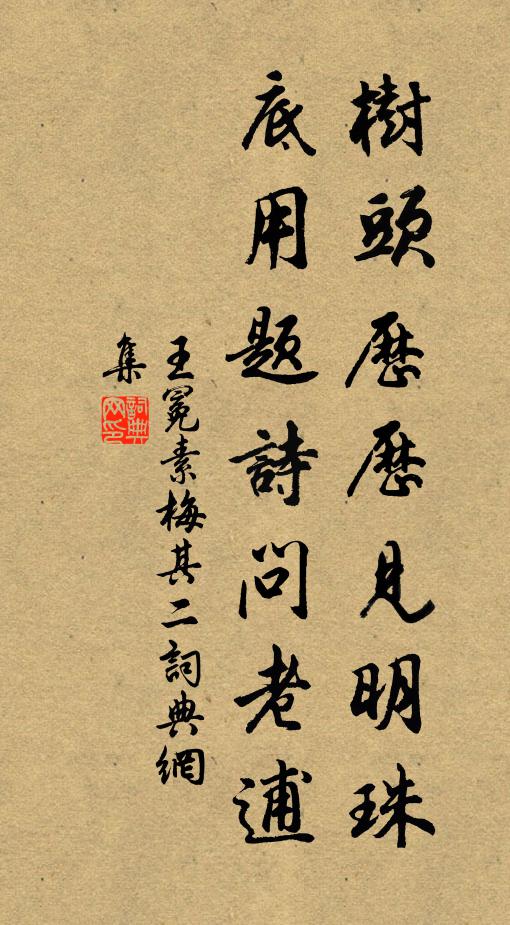 樹頭歷歷見明珠
底用題詩問老逋
王冕素梅其二詞典網
集
詞典
网印